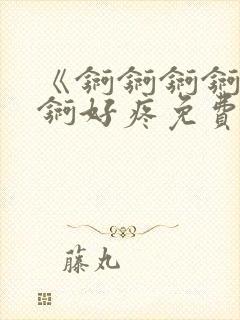 《锕锕锕锕
锕好疼免費
藤丸